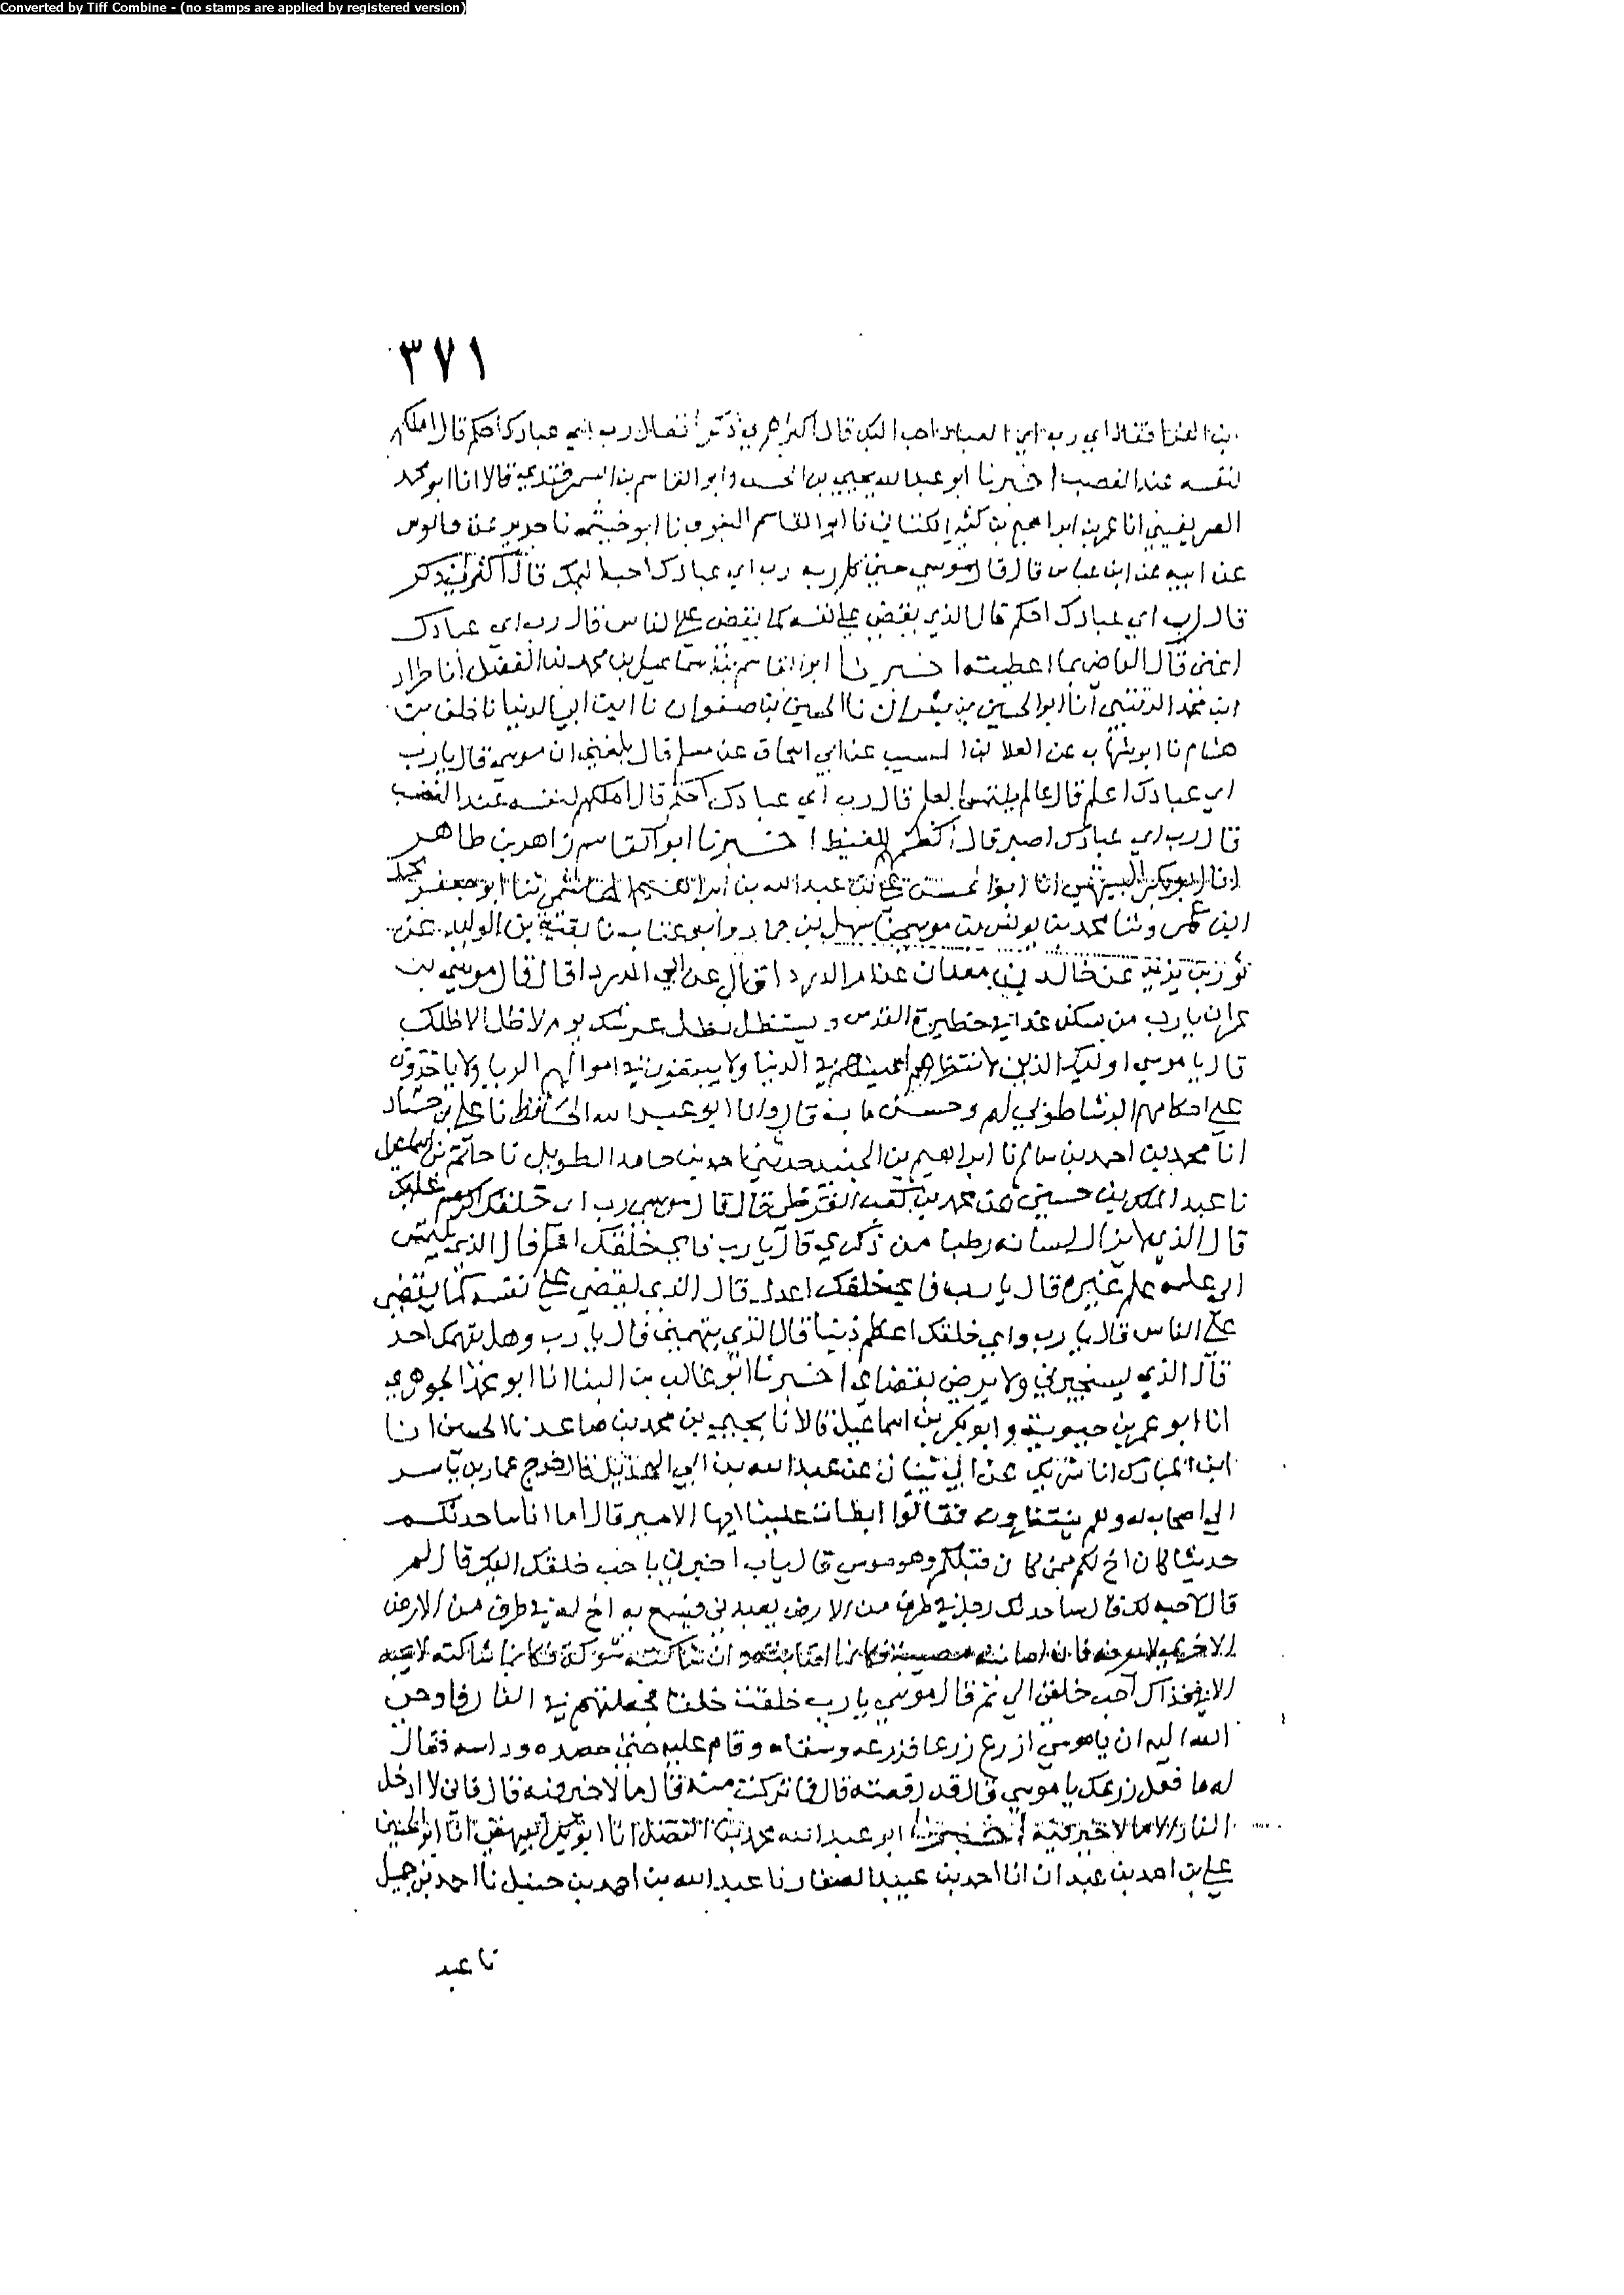 Converted by Tiff Combine - (no stamps are applied by registered version)
٣٧١
فقال اي رب اي العباد احب اليك قال اكثرهم لي ذكرا فقال رب اي عبادك احكم قال املكهم
لنفسه عند الغضب اخبرنا ابو عبد الله يحيى بن الحسن وابو القاسم بن السمرقندي قالا انا ابو محمد
الصريفيني انا عمر بن ابراهيم بن كثير الكتاني نا ابو القاسم البغوي نا ابو خيثمة نا جرير عن قابوس
عن ابيه عن ابن عباس قال قال موسى حين كلم ربه رب اي عبادك احب اليك قال اكثرهم لي ذكر
قال رب اي عبادك احكم قال الذي يقضي على نفسه كما يقضي على الناس قال رب اي عبادك
اغنى قال الراضي بما اعطيته اخبرنا ابو القاسم بن اسماعيل بن محمد بن الفضل انا طراد
ابن محمد الزينبي انا ابو الحسين بن بشران نا الحسين بن صفوان نا ابن ابي الدنيا نا خلف بن
هشام نا ابو شهاب عن العلا بن المسيب عن ابي اسحاق عن معلم قال بلغني ان موسى قال يا رب
اي عبادك اعلم قال عالم يلتمس العلم قال رب اي عبادك احكم قال املكهم لنفسه عند الغضب
قال رب اي عبادك اصبر قال اكظمهم للغيظ اخبرنا ابو القاسم زاهر بن طاهر
انا ابو بكر البيهقي انا ابو الحسن علي بن عبد الله بن ابراهيم الهاشمي ثنا ابو جعفر محمد
ابن عمرو ثنا محمد بن يونس بن موسى نا سهل بن حماد وابو عتاب نا بقية بن الوليد عن
ثور بن يزيد عن خالد بن معدان عن ام الدردا قال عن ابي الدردا قال قال موسى بن
عمران يا رب من يسكن غدا في حظيرة القدس ويستظل بظل عرشك يوم لا ظل الا ظلك
قال يا موسى اوليك الذين لا تنظر اعينهم في الدنيا ولا يبتغون في اموالهم الربا ولا ياخذون
على احكامهم الرشا طوبى لهم وحسن ماب قال وانا ابو عبد الله الحافظ نا علي بن حمشاد
انا محمد بن احمد بن سالم نا ابراهيم بن الجنيد حدثني احمد بن حامد الطويل نا حاتم بن اسماعيل
نا عبد الملك بن حسين عن محمد بن كعب القرظي قال قال موسى رب اي خلقك اكرم عليك
قال الذي لا يزال لسانه رطبا من ذكري قال يا رب فاي خلقك اعلم قال الذي يلتمس
الى علمه علم غيره قال يا رب فاي خلقك اعدل قال الذي يقضي على نفسه كما يقضي
على الناس قال يا رب واي خلقك اعظم ذنبا قال الذي يتهمني قال يا رب وهل يتهمك احد
قال الذي يستخيرني ولا يرضى بقضاي اخبرنا ابو غالب بن البنا انا ابو محمد الجوهري
انا ابو عمر بن حيوية وابو بكر بن اسماعيل قالا نا يحيى بن محمد بن صاعد نا الحسين انا
ابن المبارك انا شريك عن ابي سنان عن عبد الله بن ابي الهذيل قال خرج عمار بن ياسر
الى اصحابه وهم ينتظرونه فقالوا ابطات علينا ايها الامير قال اما انا ساحدثكم
حديثا كان اخ لكم ممن كان قبلكم وهو موسى قال يا رب اخبرني باحب خلقك اليك قال لم
قال لاحبه لك قال ساحدثك رجل في طرف من الارض يعبدني فيسمع به اخ له في طرف من الارض
الاخرى لا يعرفه فان اصابته مصيبة فكانما اصابته وان شاكته شوكة فكانما شاكته لا يحبه
الا لي فذاك احب خلقي الي ثم قال موسى يا رب خلقت خلقا فجعلتهم في النار فاوحى
الله اليه ان يا موسى ازرع زرعا فزرعه وسقاه وقام عليه حتى حصده وداسه فقال
له ما فعل زرعك يا موسى قال قد رفعته قال فما تركت منه قال ما لا خير فيه قال فاني لا ادخل
النار الا ما لا خير فيه اخبرنا ابو عبد الله محمد بن الفضل انا ابو بكر البيهقي انا ابو الحسين
علي بن احمد بن عبدان انا احمد بن عبيد الصفار نا عبد الله بن احمد بن حنبل نا احمد بن جميل
نا عبد